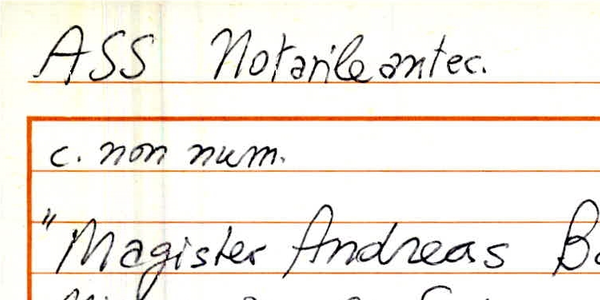 ASS Notarile antec.
c. non num.
"Magister Andreas